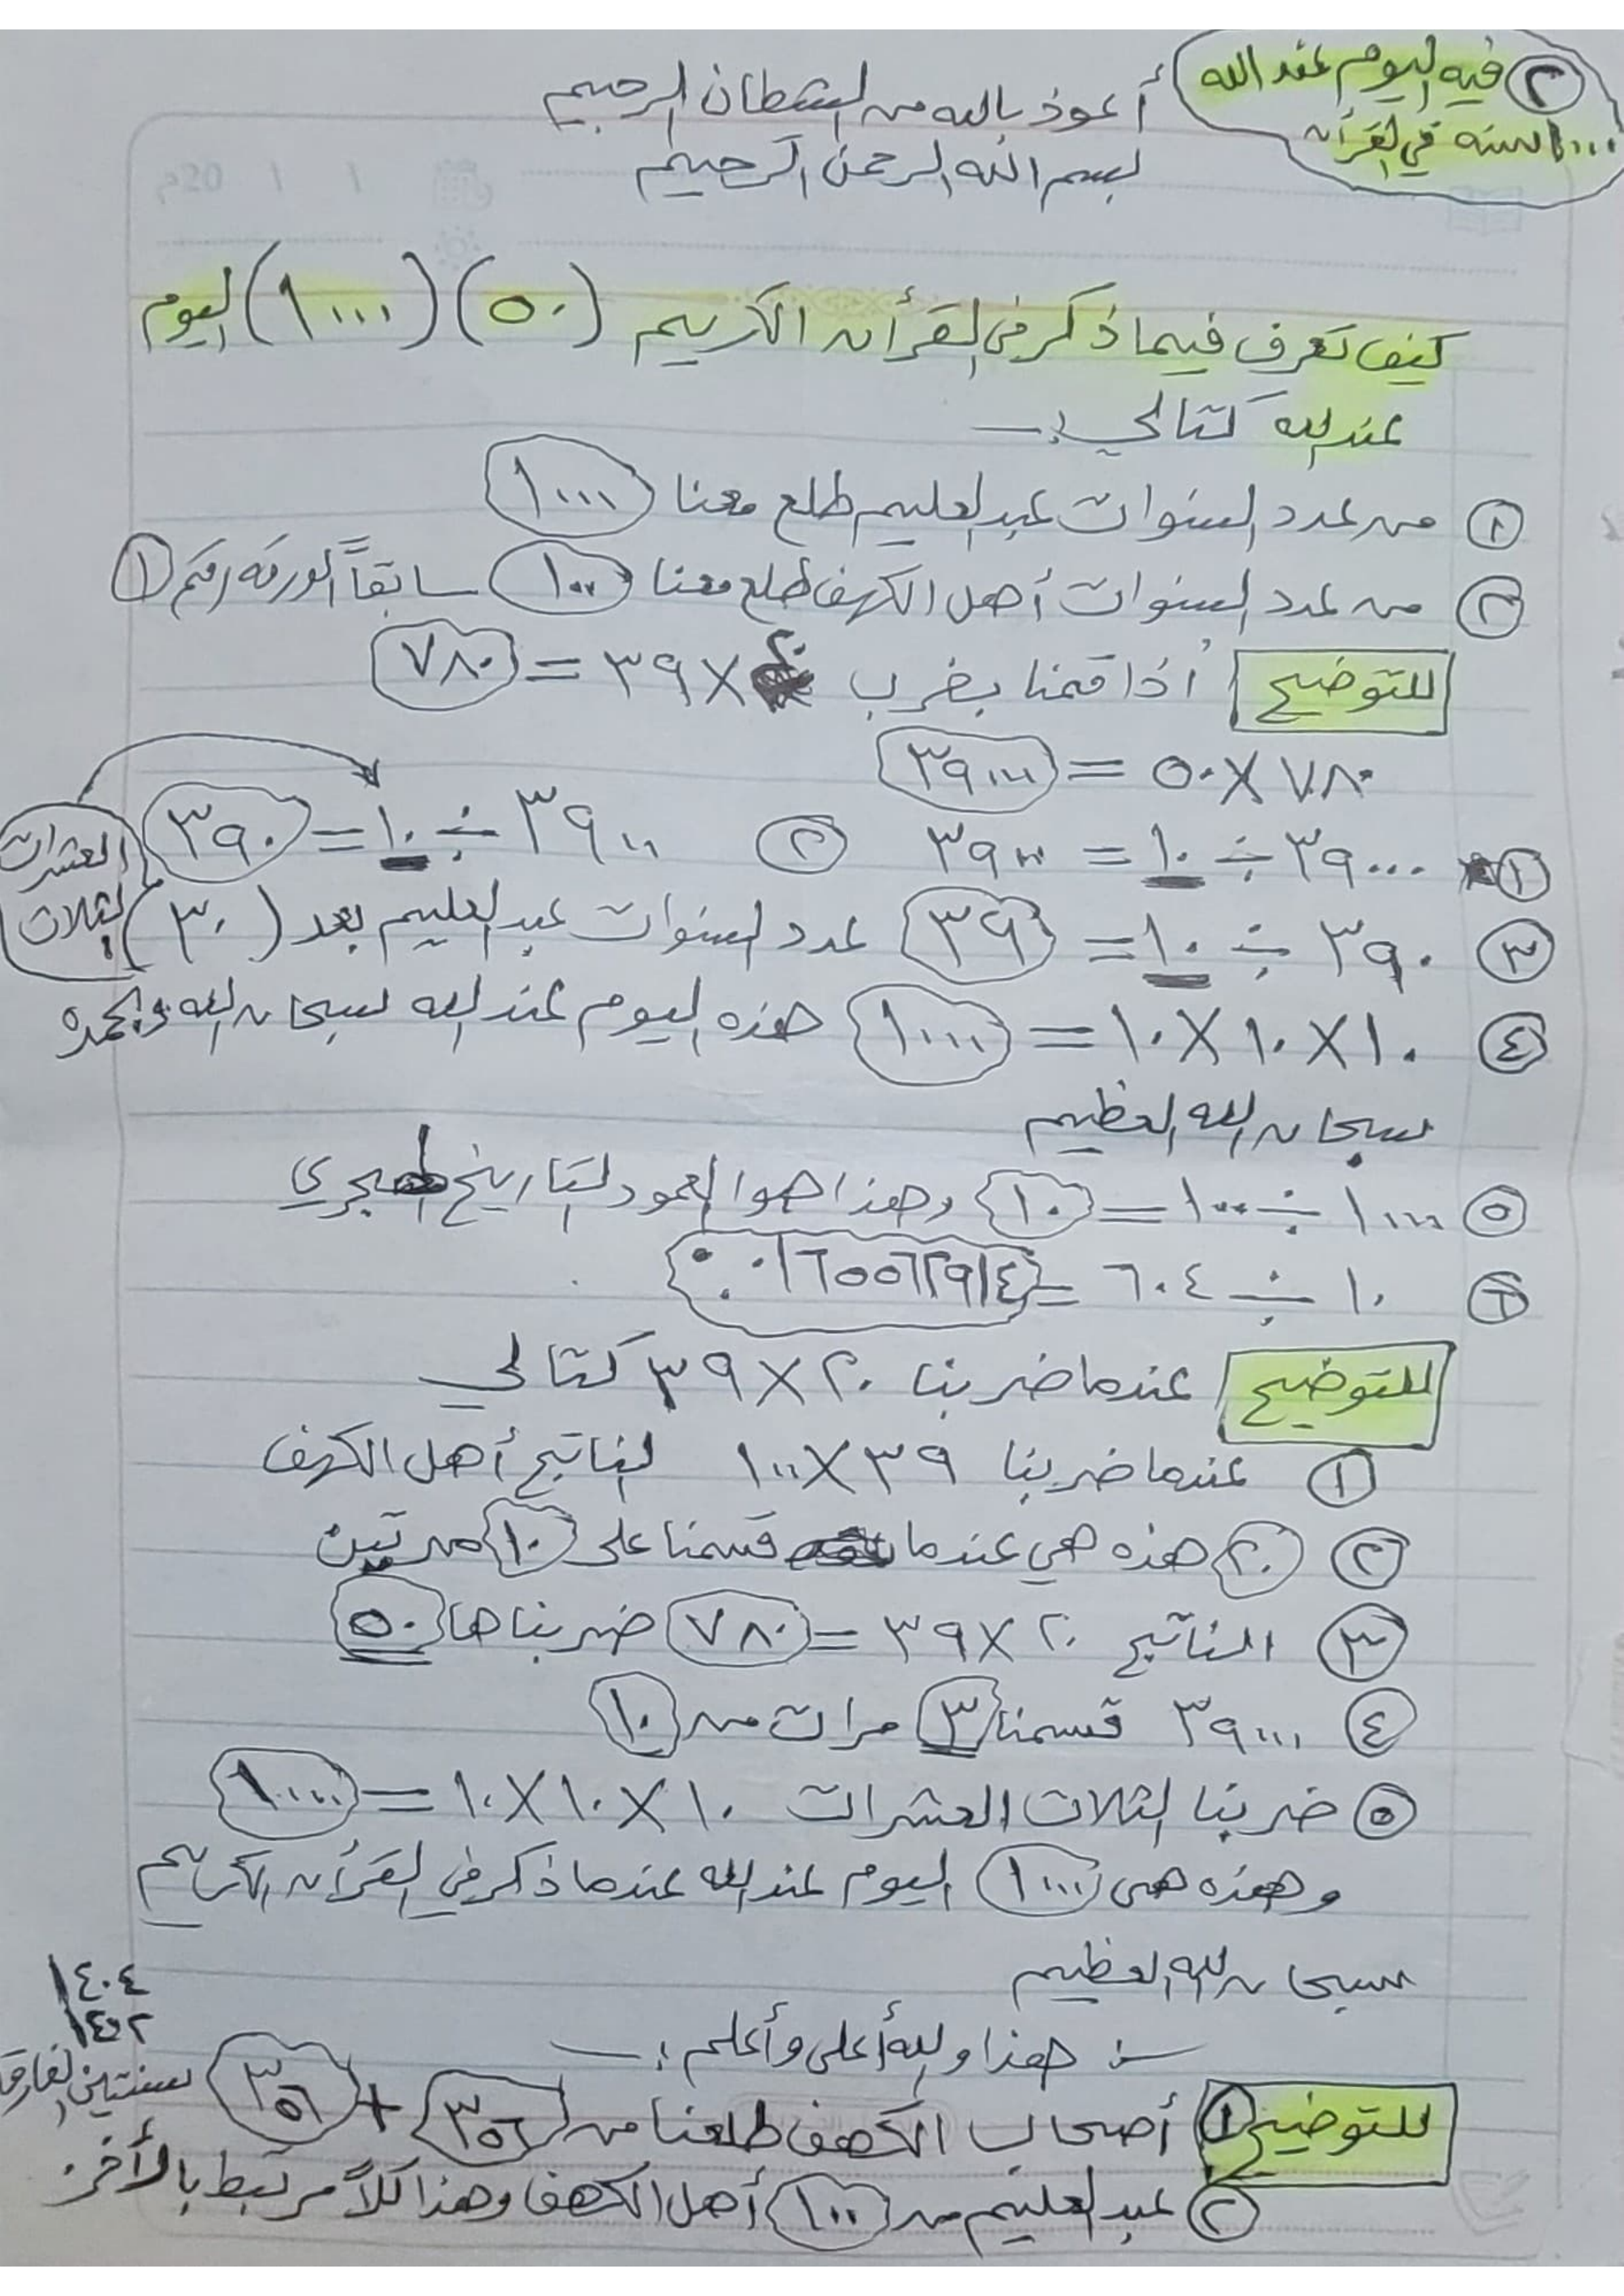 ٢ فيه اليوم عند الله
١٠٠٠ السنه في القرأن
أعوذ بالله من الشطان الرجيم
بسم الله الرحمن الرحيم
كيف تعرف فيما ذكر في القرأن الكريم (٥٠) (١٠٠٠) اليوم
عند الله كتالي :ـ
١ من عدد السنوات عبد العليم طلع معنا ١٠٠٠
٢ من عدد السنوات أهل الكهف طلع معنا ١٠٠ سابقاً الورقه رقم ١
للتوضيح أذا قمنا بضرب ٢٠ × ٣٩ = ٧٨٠
٧٨٠ × ٥٠ = ٣٩٠٠٠
١ ٣٩٠٠٠ ÷ ١٠ = ٣٩٠٠ ٢ ٣٩٠٠ ÷ ١٠ = ٣٩٠
العشرات
الثلاث
٣ ٣٩٠ ÷ ١٠ = ٣٩ عدد السنوات عبد العليم بعد (٣٠)
٤ ١٠ × ١٠ × ١٠ = ١٠٠٠ هذه اليوم عند الله سبحان الله وبحمده
سبحان الله العظيم
٥ ١٠٠٠ ÷ ١٠٠ = ١٠ وهذا هوا العمود لتاريخ الهجري
٦ ١٠ ÷ ٦٠٤ = ٠.٠١٦٥٥٦٢٩١٤
للتوضيح عندما ضربنا ٢٠ × ٣٩ كتالي
١ عندما ضربنا ٣٩ × ١٠٠ لناتج أهل الكهف
٢ ٢٠ هذه هي عندما قسمنا على ١٠ مرتين
٣ الناتج ٢٠ × ٣٩ = ٧٨٠ ضربناها ٥٠
٤ ٣٩٠٠٠ قسمنا ٣ مرات من ١٠
٥ ضربنا لثلاث العشرات ١٠ × ١٠ × ١٠ = ١٠٠٠
وهذه هي ١٠٠٠ اليوم عند الله عندما ذكر في القرأن الكريم
سبحان الله العظيم
هذا والله أعلى وأعلم :ـ
١٤٠٤
١٤٠٢
سنتين الفارق
للتوضيح ١ أصحاب الكهف طلعنا من ٣٥٦ + ٣٥٦
٢ عبد العليم من ١٠٠ أهل الكهف وهذا كلاً مرتبط بالأخر